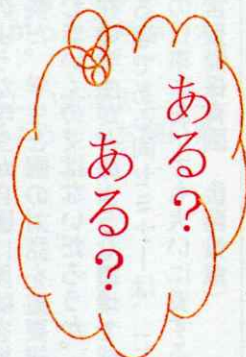 ある？
ある？